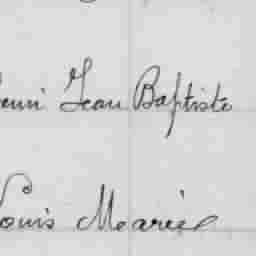 enri Jean Baptiste
Louis Marie